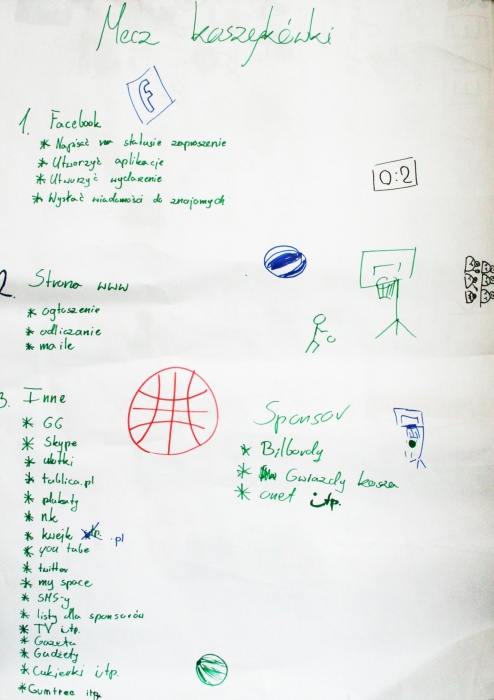 Mecz koszykówki
F
1. Facebook
* Napisać w statusie zaproszenie
* Utworzyć aplikacje
* Utworzyć wydarzenie
* Wysłać wiadomości do znajomych
0:2
2. Strona www
* ogłoszenie
* odliczanie
* maile
3. Inne
* GG
* Skype
* ulotki
* tablica.pl
* plakaty
* nk
* kwejk .pl
* you tube
* twitter
* my space
* SMS-y
* listy dla sponsorów
* TV itp.
* Gazeta
* Gadżety
* Cukierki itp.
* Gumtree itp.
Sponsor
* Bilbordy
* Gwiazdy kosza
* onet itp.